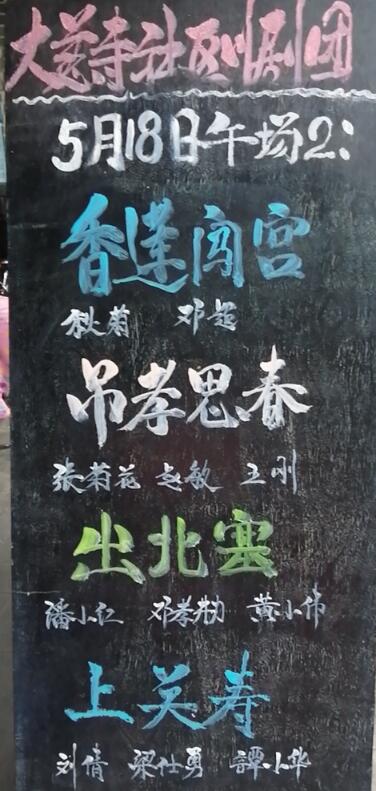 大慈寺社区川剧团
5月18日午场2:
香莲闯宫
秋菊 邓超
吊孝思春
张菊花 赵敏 王刚
出北塞
潘小仁 邓孝勤 黄小伟
上关寿
刘倩 梁仕勇 譚小华